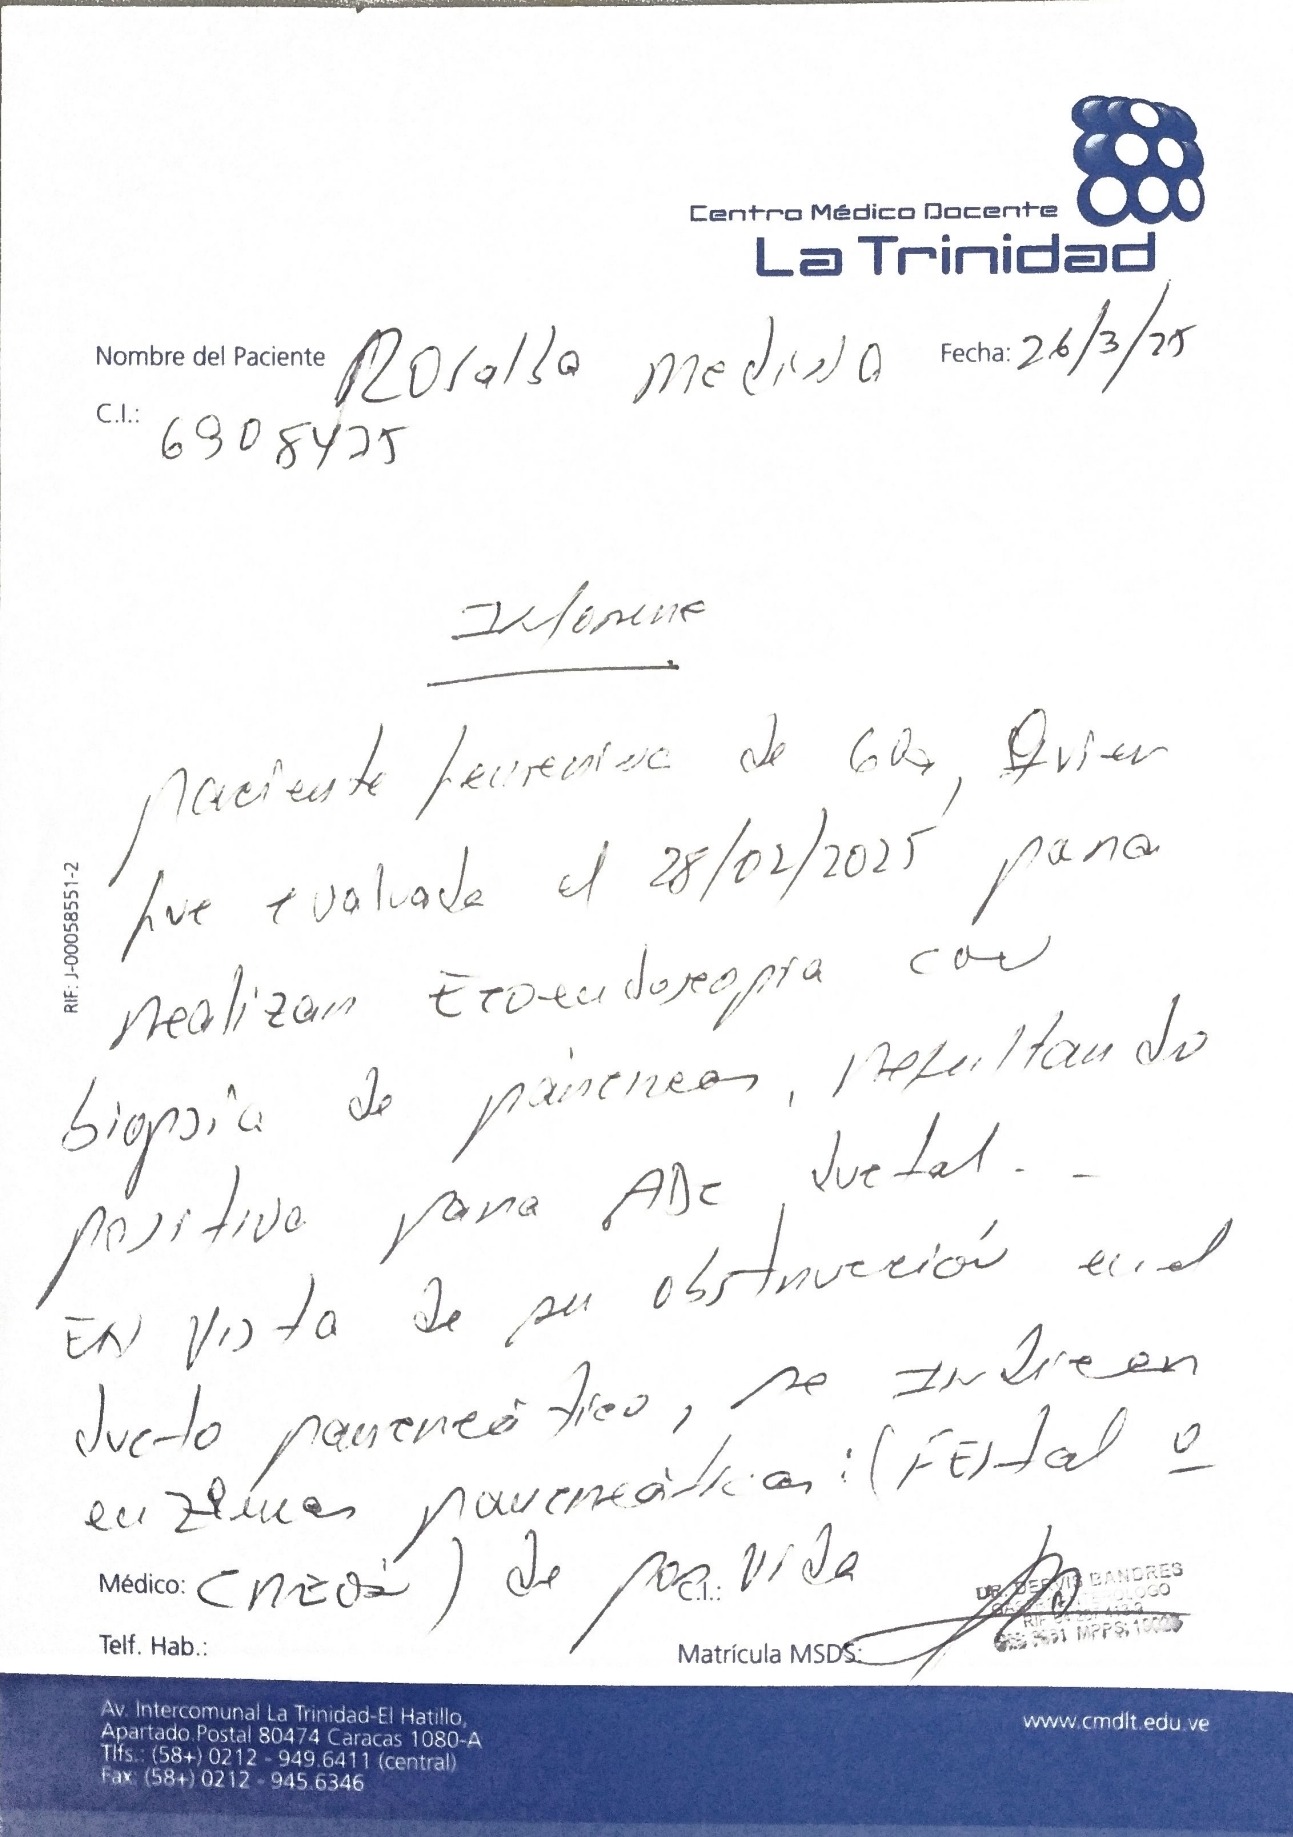 Centro Médico Docente
La Trinidad
Nombre del Paciente Rosalba Medina Fecha: 26/3/25
C.I.: 6908425
Informe
Paciente femenina de 60a, Quien
fue evaluada el 28/02/2025 para
realizar Ecoendoscopia con
biopsia de páncreas, resultando
positiva para ADC ductal.-
EN Vista de su obstrucción en el
ducto pancreático, se Indican
enzimas pancreáticas: (FEstal o
CREON) de por vida
Médico: C.I.:
DR. DERVIS BANDRES
Telf. Hab.: Matrícula MSDS:
RIF: J-00058551-2
Av. Intercomunal La Trinidad-El Hatillo,
Apartado Postal 80474 Caracas 1080-A
Tlfs.: (58+) 0212 - 949.6411 (central)
Fax: (58+) 0212 - 945.6346
www.cmdlt.edu.ve